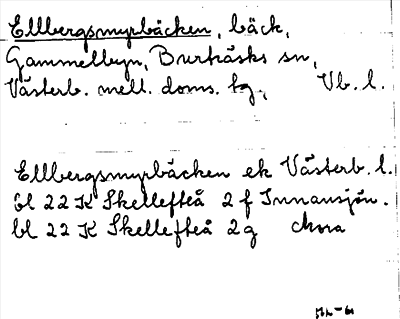 Ellbergsmyrbäcken, bäck,
Gammelbyn, Burträsks sn,
Västerb. mell. doms. tg., Vb. l.
Ellbergsmyrbäcken ek Västerb. l.
bl 22 K Skellefteå 2 f Innansjön.
bl 22 K Skellefteå 2g